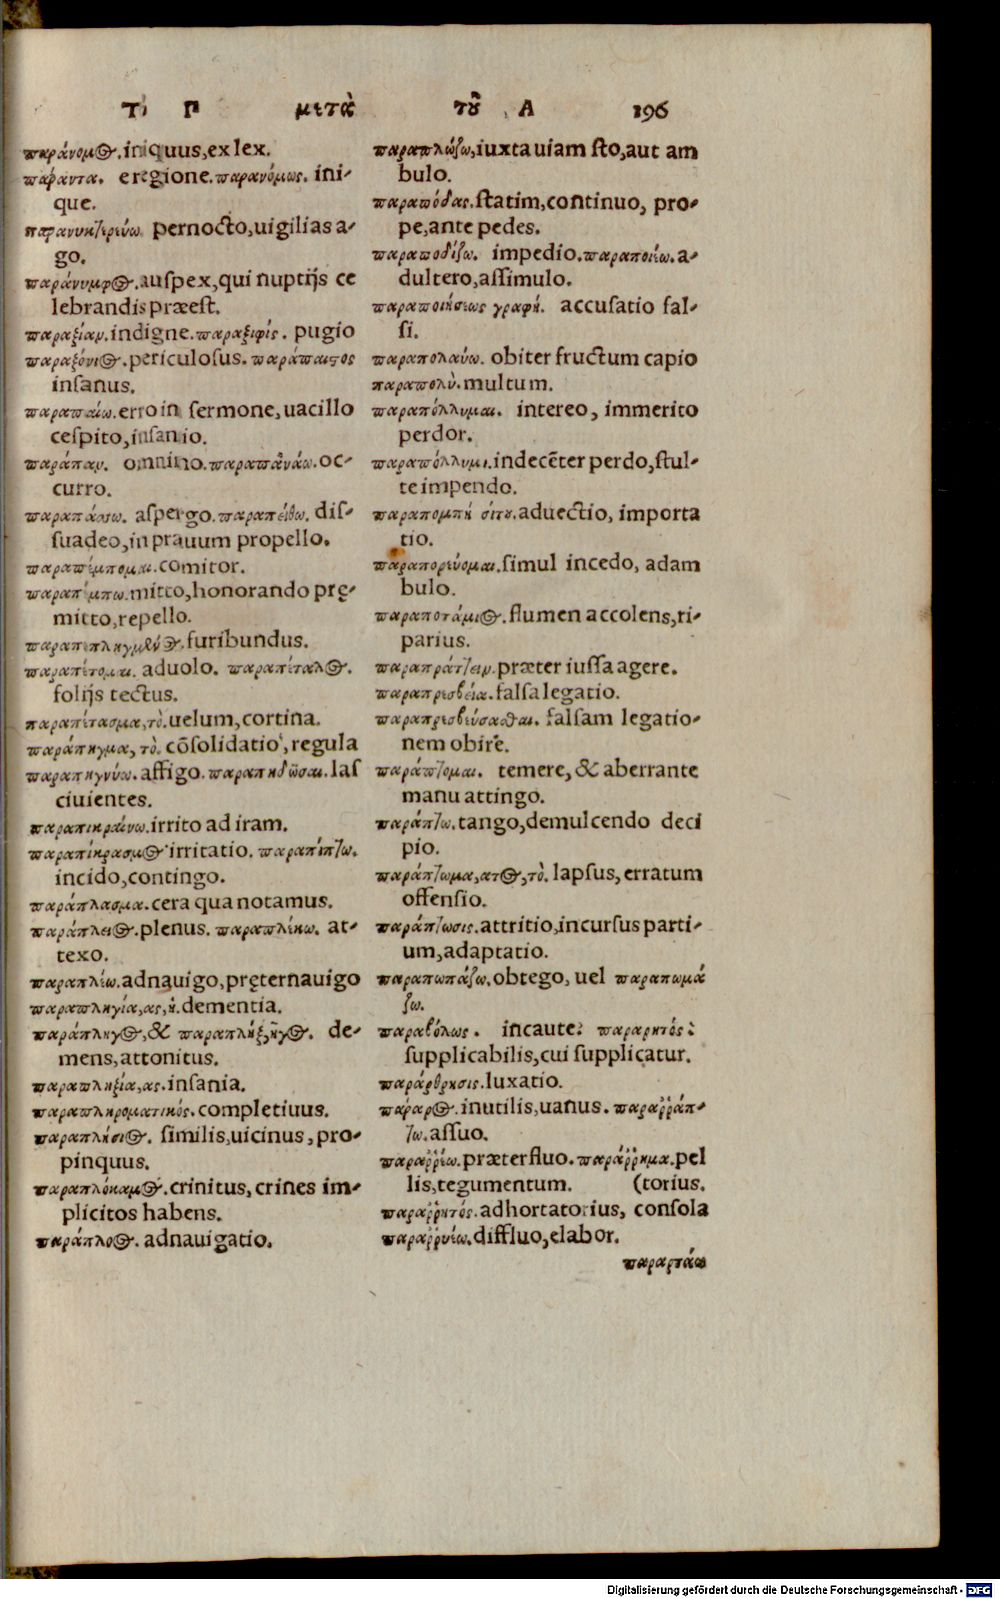 Τὸ Π μετὰ τοῦ Α 196
παράνομος. iniquus, ex lex.
παράντα. e regione. παρανόμως. ini-
que.
παρανυκτερεύω pernocto, uigilias a-
go.
παράνυμφος. auspex, qui nuptijs ce
lebrandis præest.
παραξίαν. indigne. παραξιφίς. pugio
παραξόνιος. periculosus. παράπαιστος
insanus.
παραπαίω. erro in sermone, uacillo
cespito, insanio.
παράπαν. omnino. παραπαντάω. oc-
curro.
παραπάσσω. aspergo. παραπείθω. dis-
suadeo, in prauum propello.
παραπέμπομαι. comitor.
παραπέμπω. mitto, honorando prę-
mitto, repello.
παραπεπληγμένος. furibundus.
παραπέτομαι. aduolo. παραπέταλος.
folijs tectus.
παραπέτασμα, τὸ. uelum, cortina.
παράπηγμα, τὸ. cōsolidatio, regula
παραπηγνύω. affigo. παραπηδῶσαι. las
ciuientes.
παραπικραίνω. irrito ad iram.
παραπίκρασμος irritatio. παραπίπτω.
incido, contingo.
παράπλασμα. cera qua notamus.
παράπλειος. plenus. παραπλέκω. at-
texo.
παραπλέω. adnauigo, pręternauigo
παραπληγία, ας, ἡ. dementia.
παράπληγος, & παραπλήξ, ῆγος. de-
mens, attonitus.
παραπληξία, ας. insania.
παραπληροματικός. completiuus.
παραπλήσιος. similis, uicinus, pro-
pinquus.
παραπλόκαμος. crinitus, crines im-
plicitos habens.
παράπλοος. adnauigatio.
παραπλώζω, iuxta uiam sto, aut am
bulo.
παραπόδας. statim, continuo, pro-
pe, ante pedes.
παραποδίζω. impedio. παραποιέω. a-
dultero, assimulo.
παραποιήσεως γραφή. accusatio fal-
si.
παραπολαύω. obiter fructum capio
παραπολὺ. multum.
παραπόλλυμαι. intereo, immerito
perdor.
παραπόλλυμι. indecēter perdo, stul-
te impendo.
παραπομπή σίτου. aduectio, importa
tio.
παραπορεύομαι. simul incedo, adam
bulo.
παραποτάμιος. flumen accolens, ri-
parius.
παραπράττειν. præter iussa agere.
παραπρεσβεία. falsa legatio.
παραπρεσβεύσασθαι. falsam legatio-
nem obire.
παράπτομαι. temere, & aberrante
manu attingo.
παράπτω. tango, demulcendo deci
pio.
παράπτωμα, ατος, τὸ. lapsus, erratum
offensio.
παράπτωσις. attritio, incursus parti-
um, adaptatio.
παραπωπάζω. obtego, uel παραπωμά
ζω.
παραβόλως. incaute: παραρητός:
supplicabilis, cui supplicatur.
παράρθρησις. luxatio.
παράρος. inutilis, uanus. παραῤῥάπ-
τω. assuo.
παραῤῥέω. præterfluo. παράῤῥημα. pel
lis, tegumentum. (torius.
παραῤῥητός. adhortatorius, consola
παραῤῥυέω. diffluo, elabor.
παραρτάω
Digitalisierung gefördert durch die Deutsche Forschungsgemeinschaft - DFG